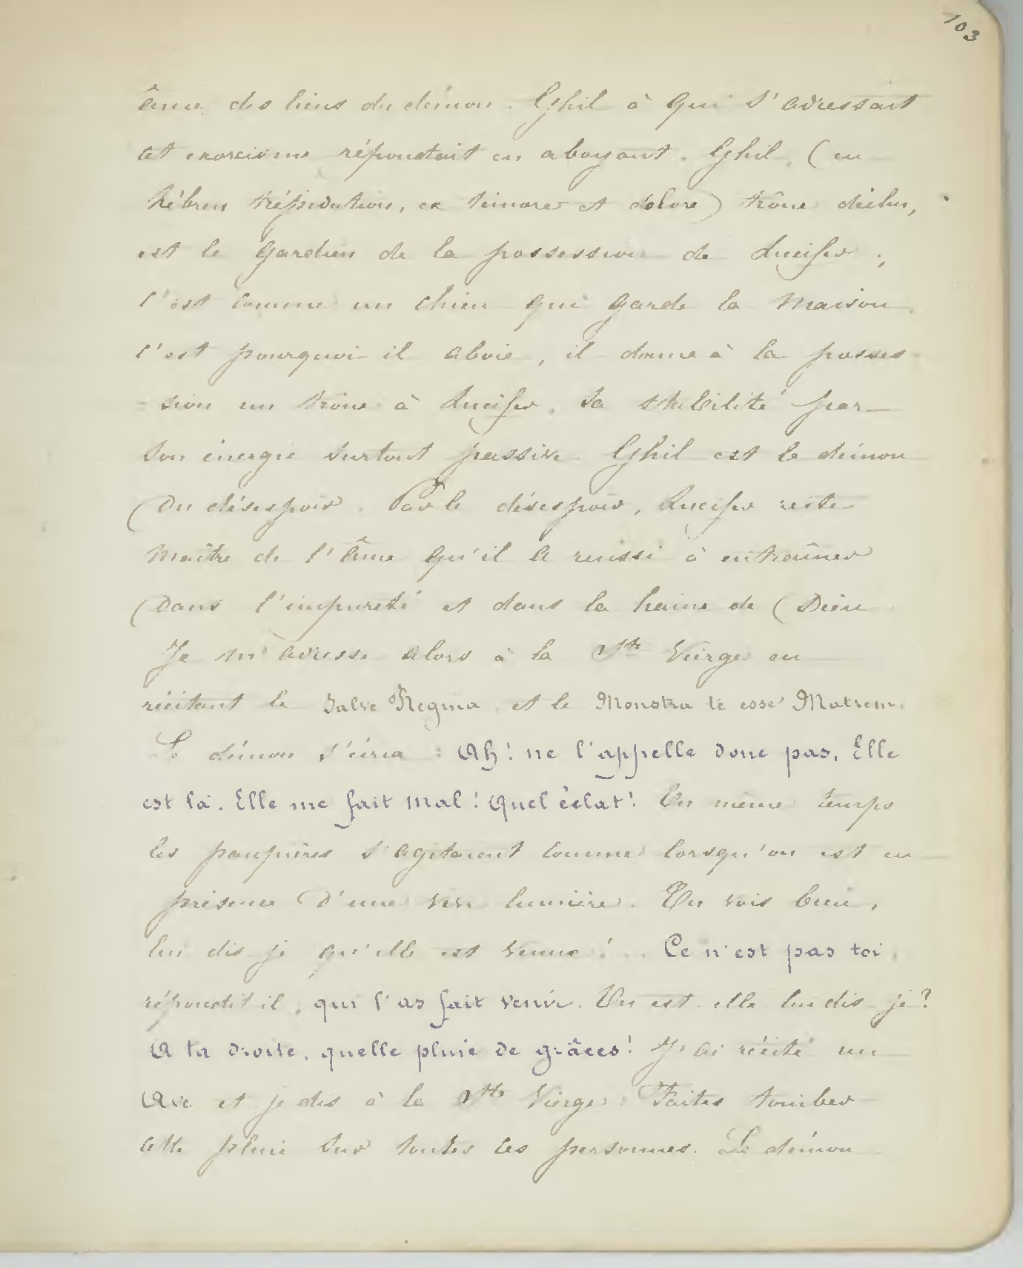 103
âme des liens du démon. Ghil à qui s'adressait
cet exorcisme répondait en aboyant. Ghil, (en
hébreu trépidation, ex timore et dolore) trône déchu,
est le gardien de la possession de Lucifer ;
c'est comme un chien qui garde la maison.
C'est pourquoi il aboie, il donne à la posses-
-sion un trône à Lucifer, sa stabilité par
son énergie surtout passive. Ghil est le démon
du désespoir. Par le désespoir, Lucifer reste
maître de l'âme qu'il a reussi à entraîner
dans l'impureté et dans la haine de Dieu.
Je m'adresse alors à la Ste Vierge en
récitant le Salve Regina, et le Monstra te esse Matrem.
Le démon s'écria : Ah! ne l'appelle donc pas, Elle
est là. Elle me fait mal! Quel éclat! En même temps
les paupières s'agitaient comme lorsqu'on est en
présence d'une vive lumière. Tu vois bien,
lui dis je qu'elle est venue!... Ce n'est pas toi,
répondit il, qui l'as fait venir. Où est elle lui dis-je?
A ta droite, quelle pluie de grâces! J'ai récité un
Ave et je dis à la Ste Vierge: Faites tomber
cette pluie sur toutes les personnes. Le démon